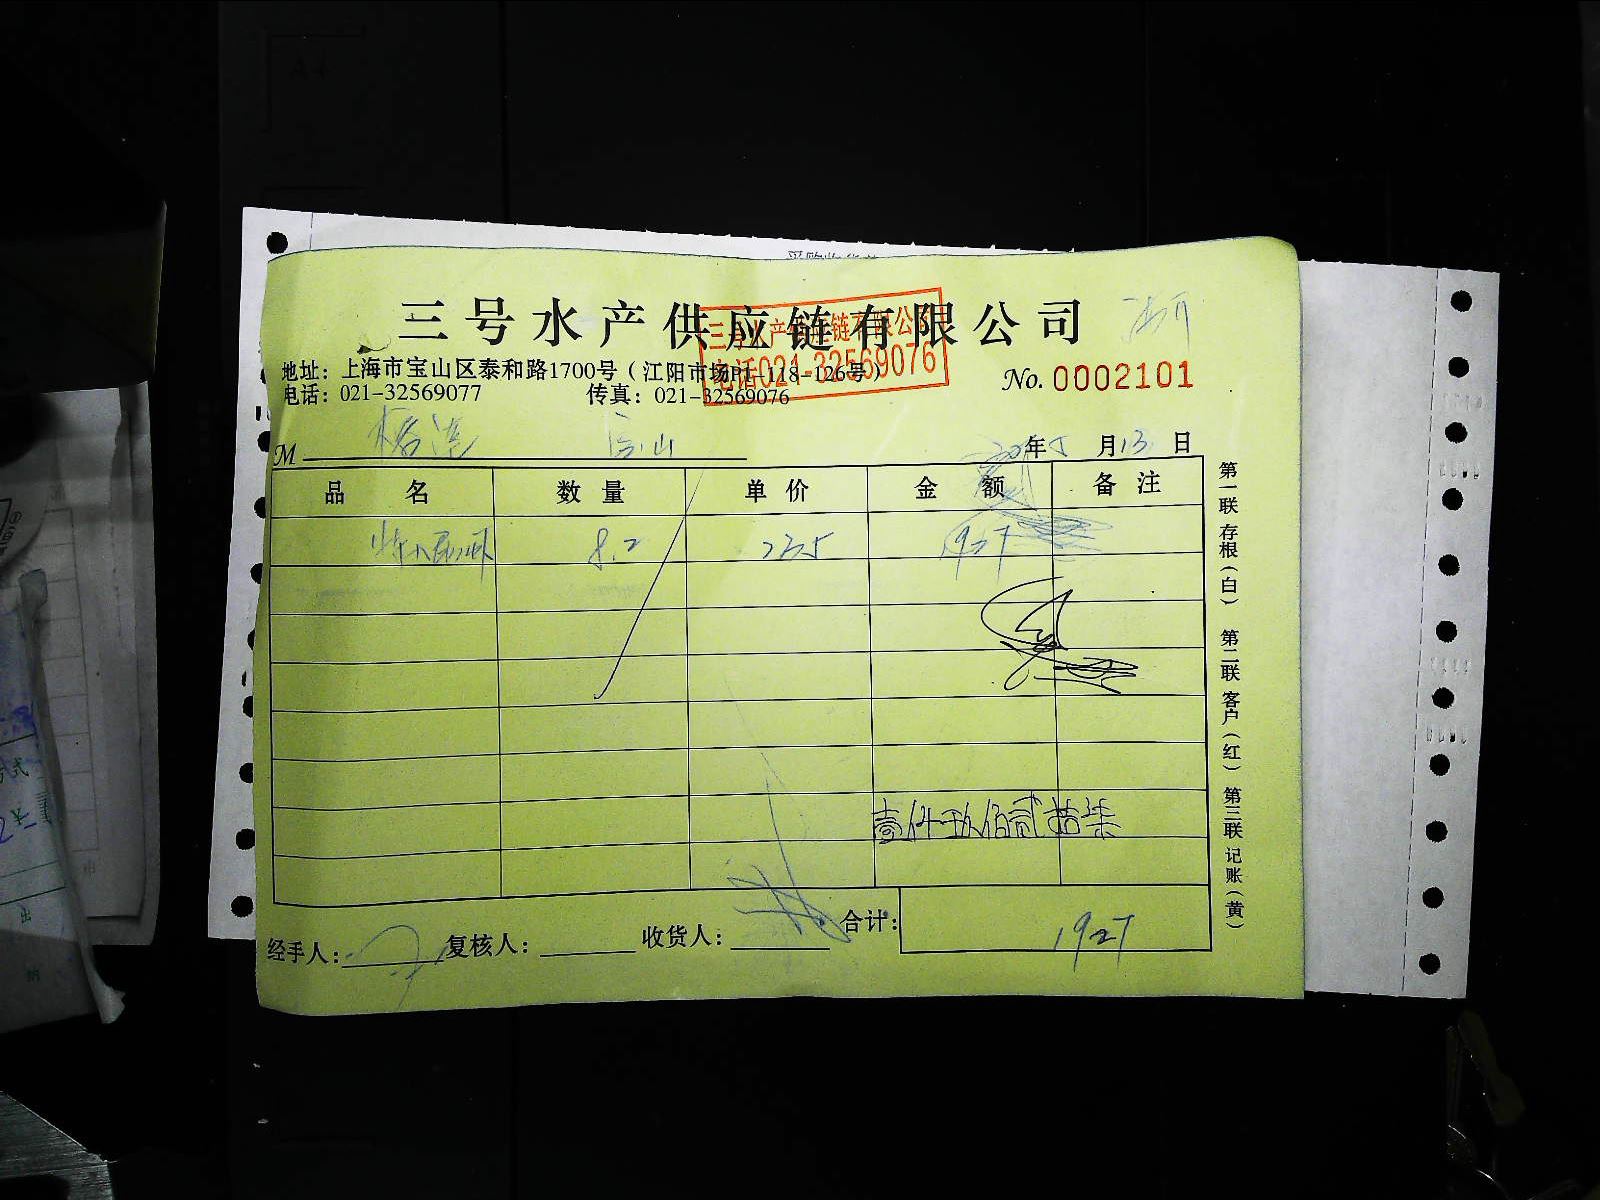 三号水产供应链有限公司
三号水产供应链有限公司
电话021-32569076
地址：上海市宝山区泰和路1700号（江阳市场P1-118-126号）
No. 0002101
电话：021-32569077 传真：021-32569076
M 宝山 20年5月13日
品名 数量 单价 金额 备注
8.2 235 1927
壹仟玖佰贰拾柒
经手人： 复核人： 收货人： 合计： 1927
第一联 存根（白） 第二联 客户（红） 第三联 记账（黄）